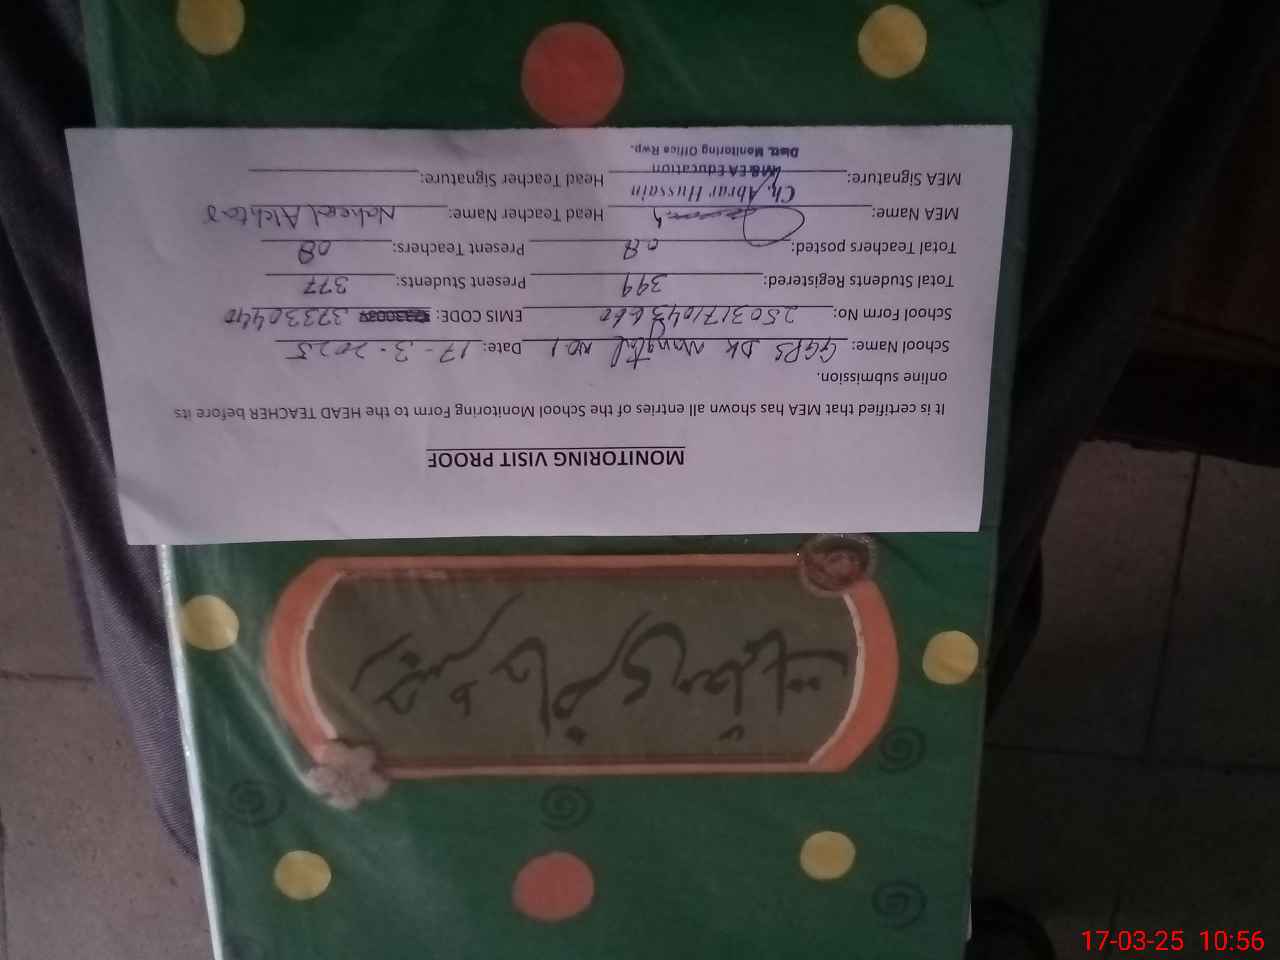 MONITORING VISIT PROOF
It is certified that MEA has shown all entries of the School Monitoring Form to the HEAD TEACHER before its
online submission.
School Name: GGPS Dk No.1 Date: 17-3-2025
School Form No: EMIS CODE: 37330440
Total Students Registered: 399 Present Students: 377
Total Teachers posted: 08 Present Teachers: 08
MEA Name: Head Teacher Name: Naheed Akhtar
Ch. Abrar Hussain
MEA Signature: Head Teacher Signature:
M&EA Education
Distt. Monitoring Office Rwp.
17-03-25 10:56